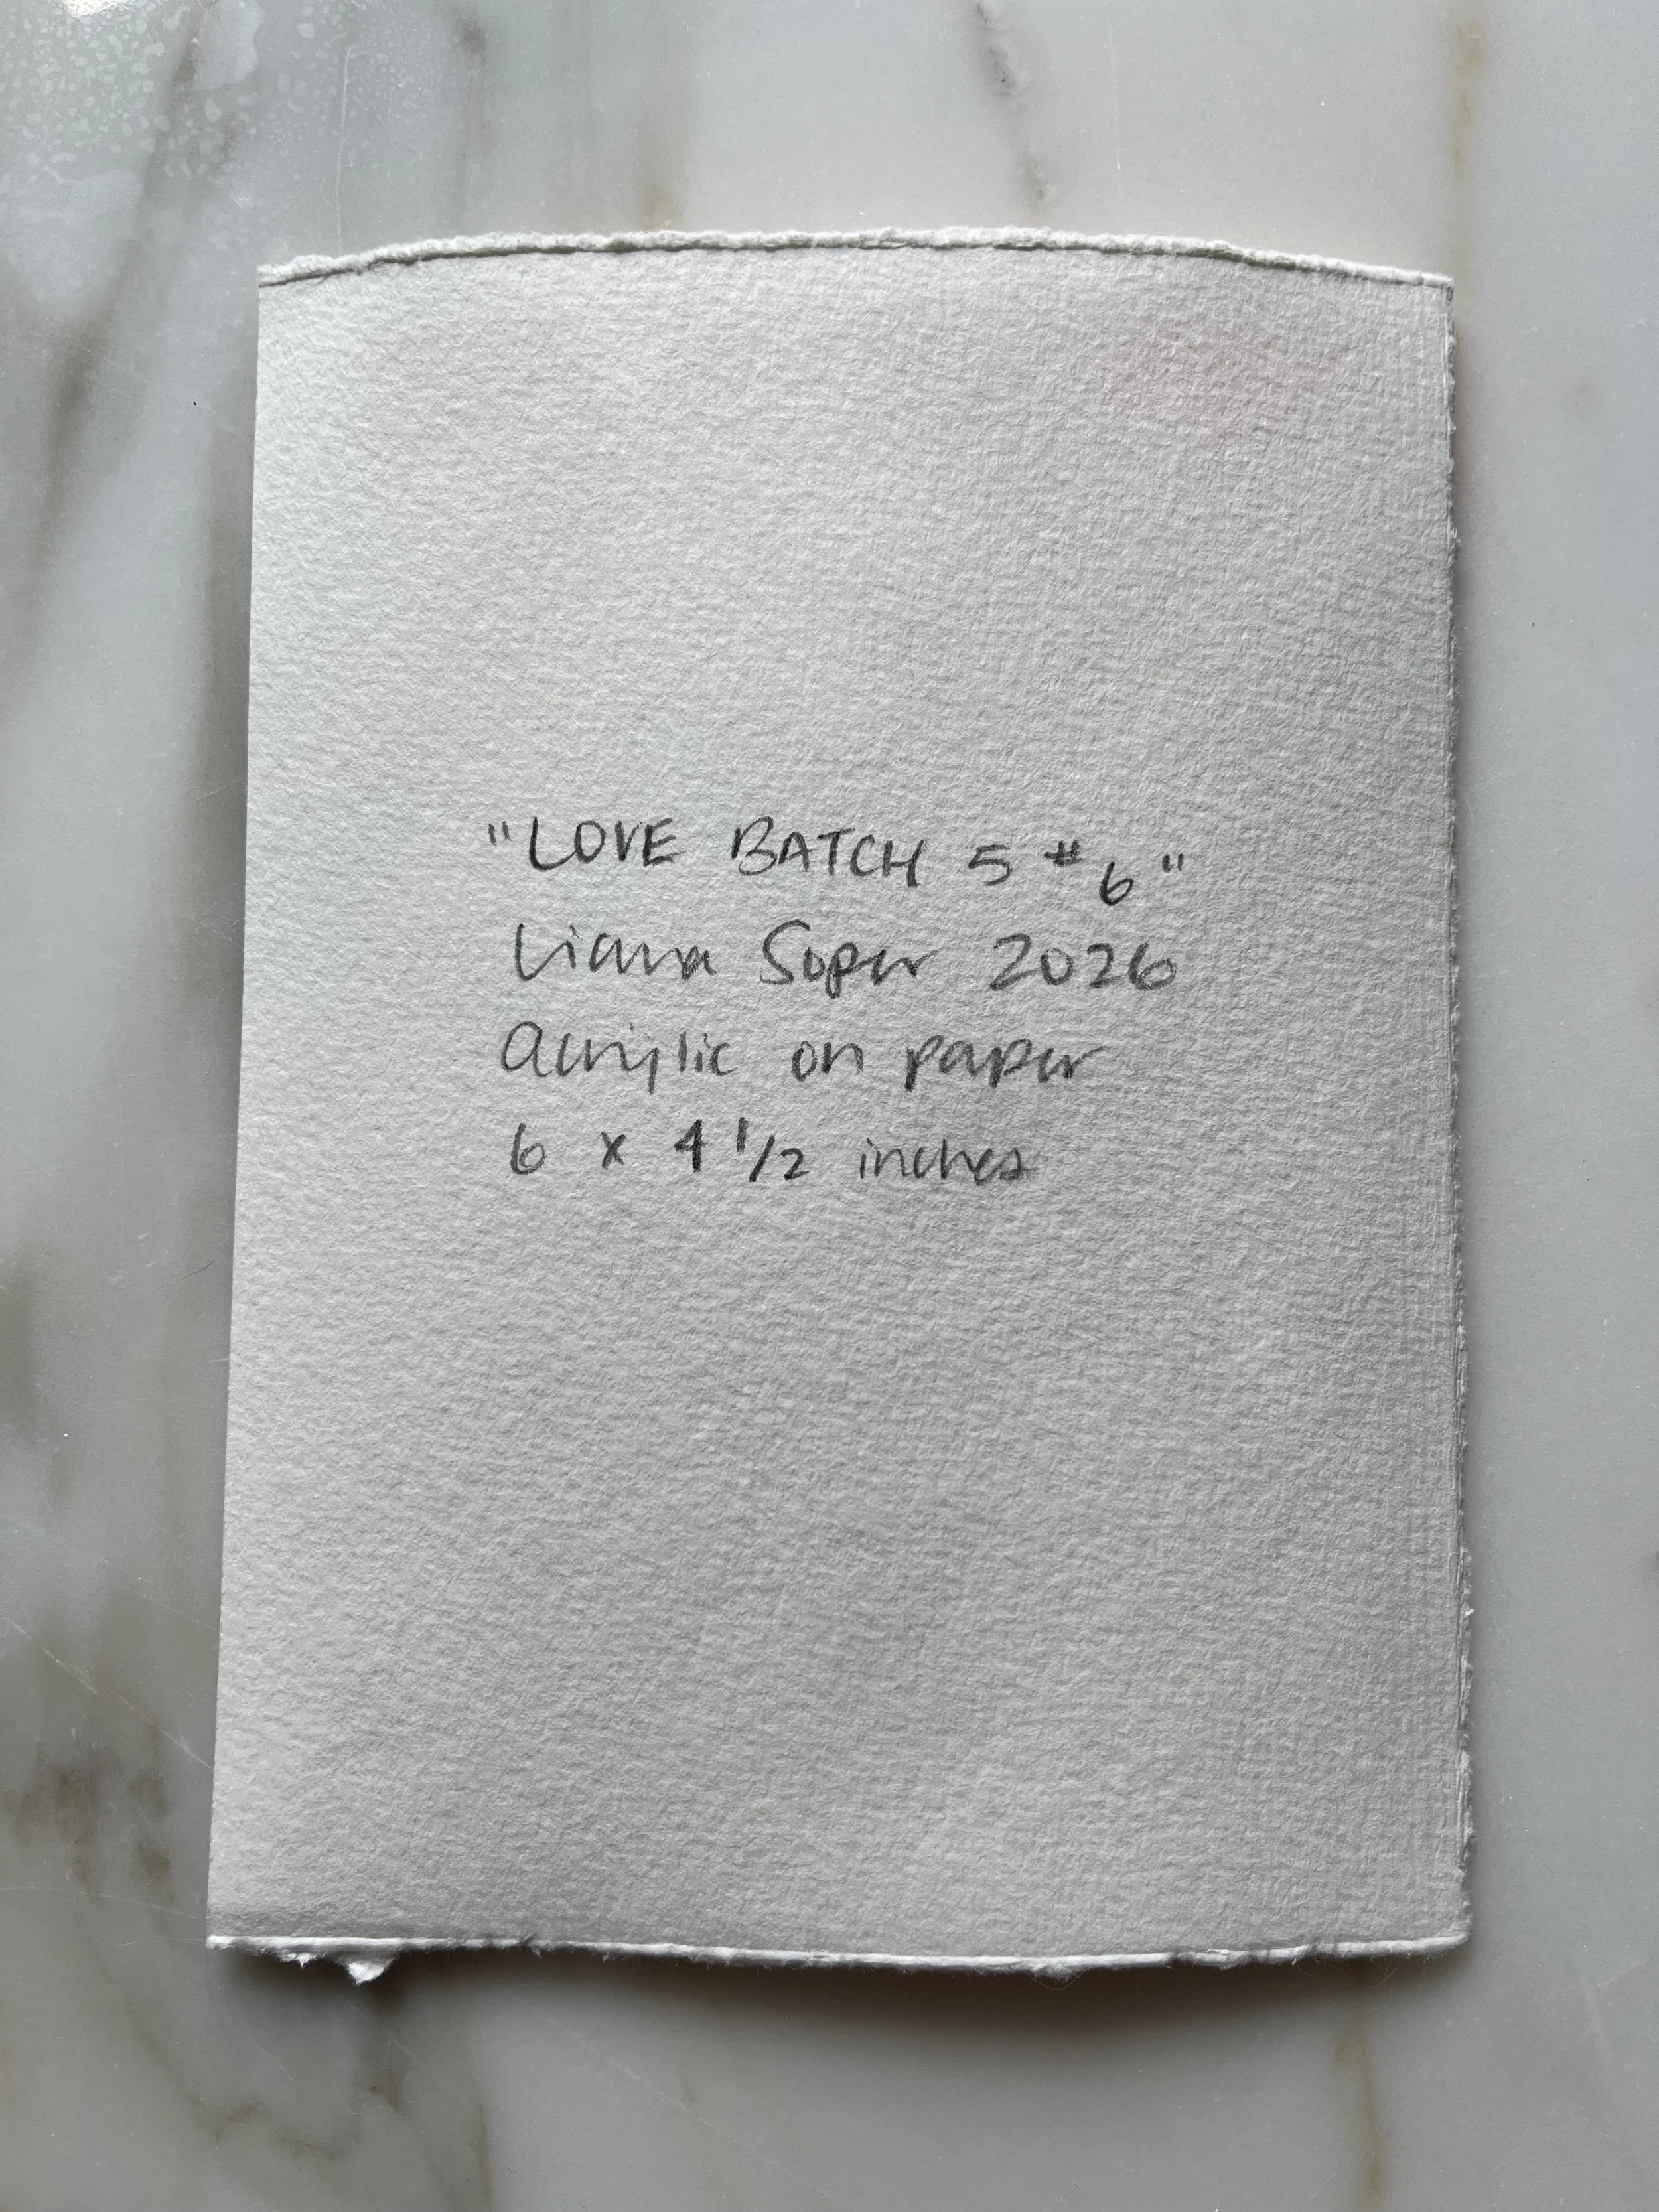 "LOVE BATCH 5 #6"
Liana Soper 2026
Acrylic on paper
6 x 4 1/2 inches